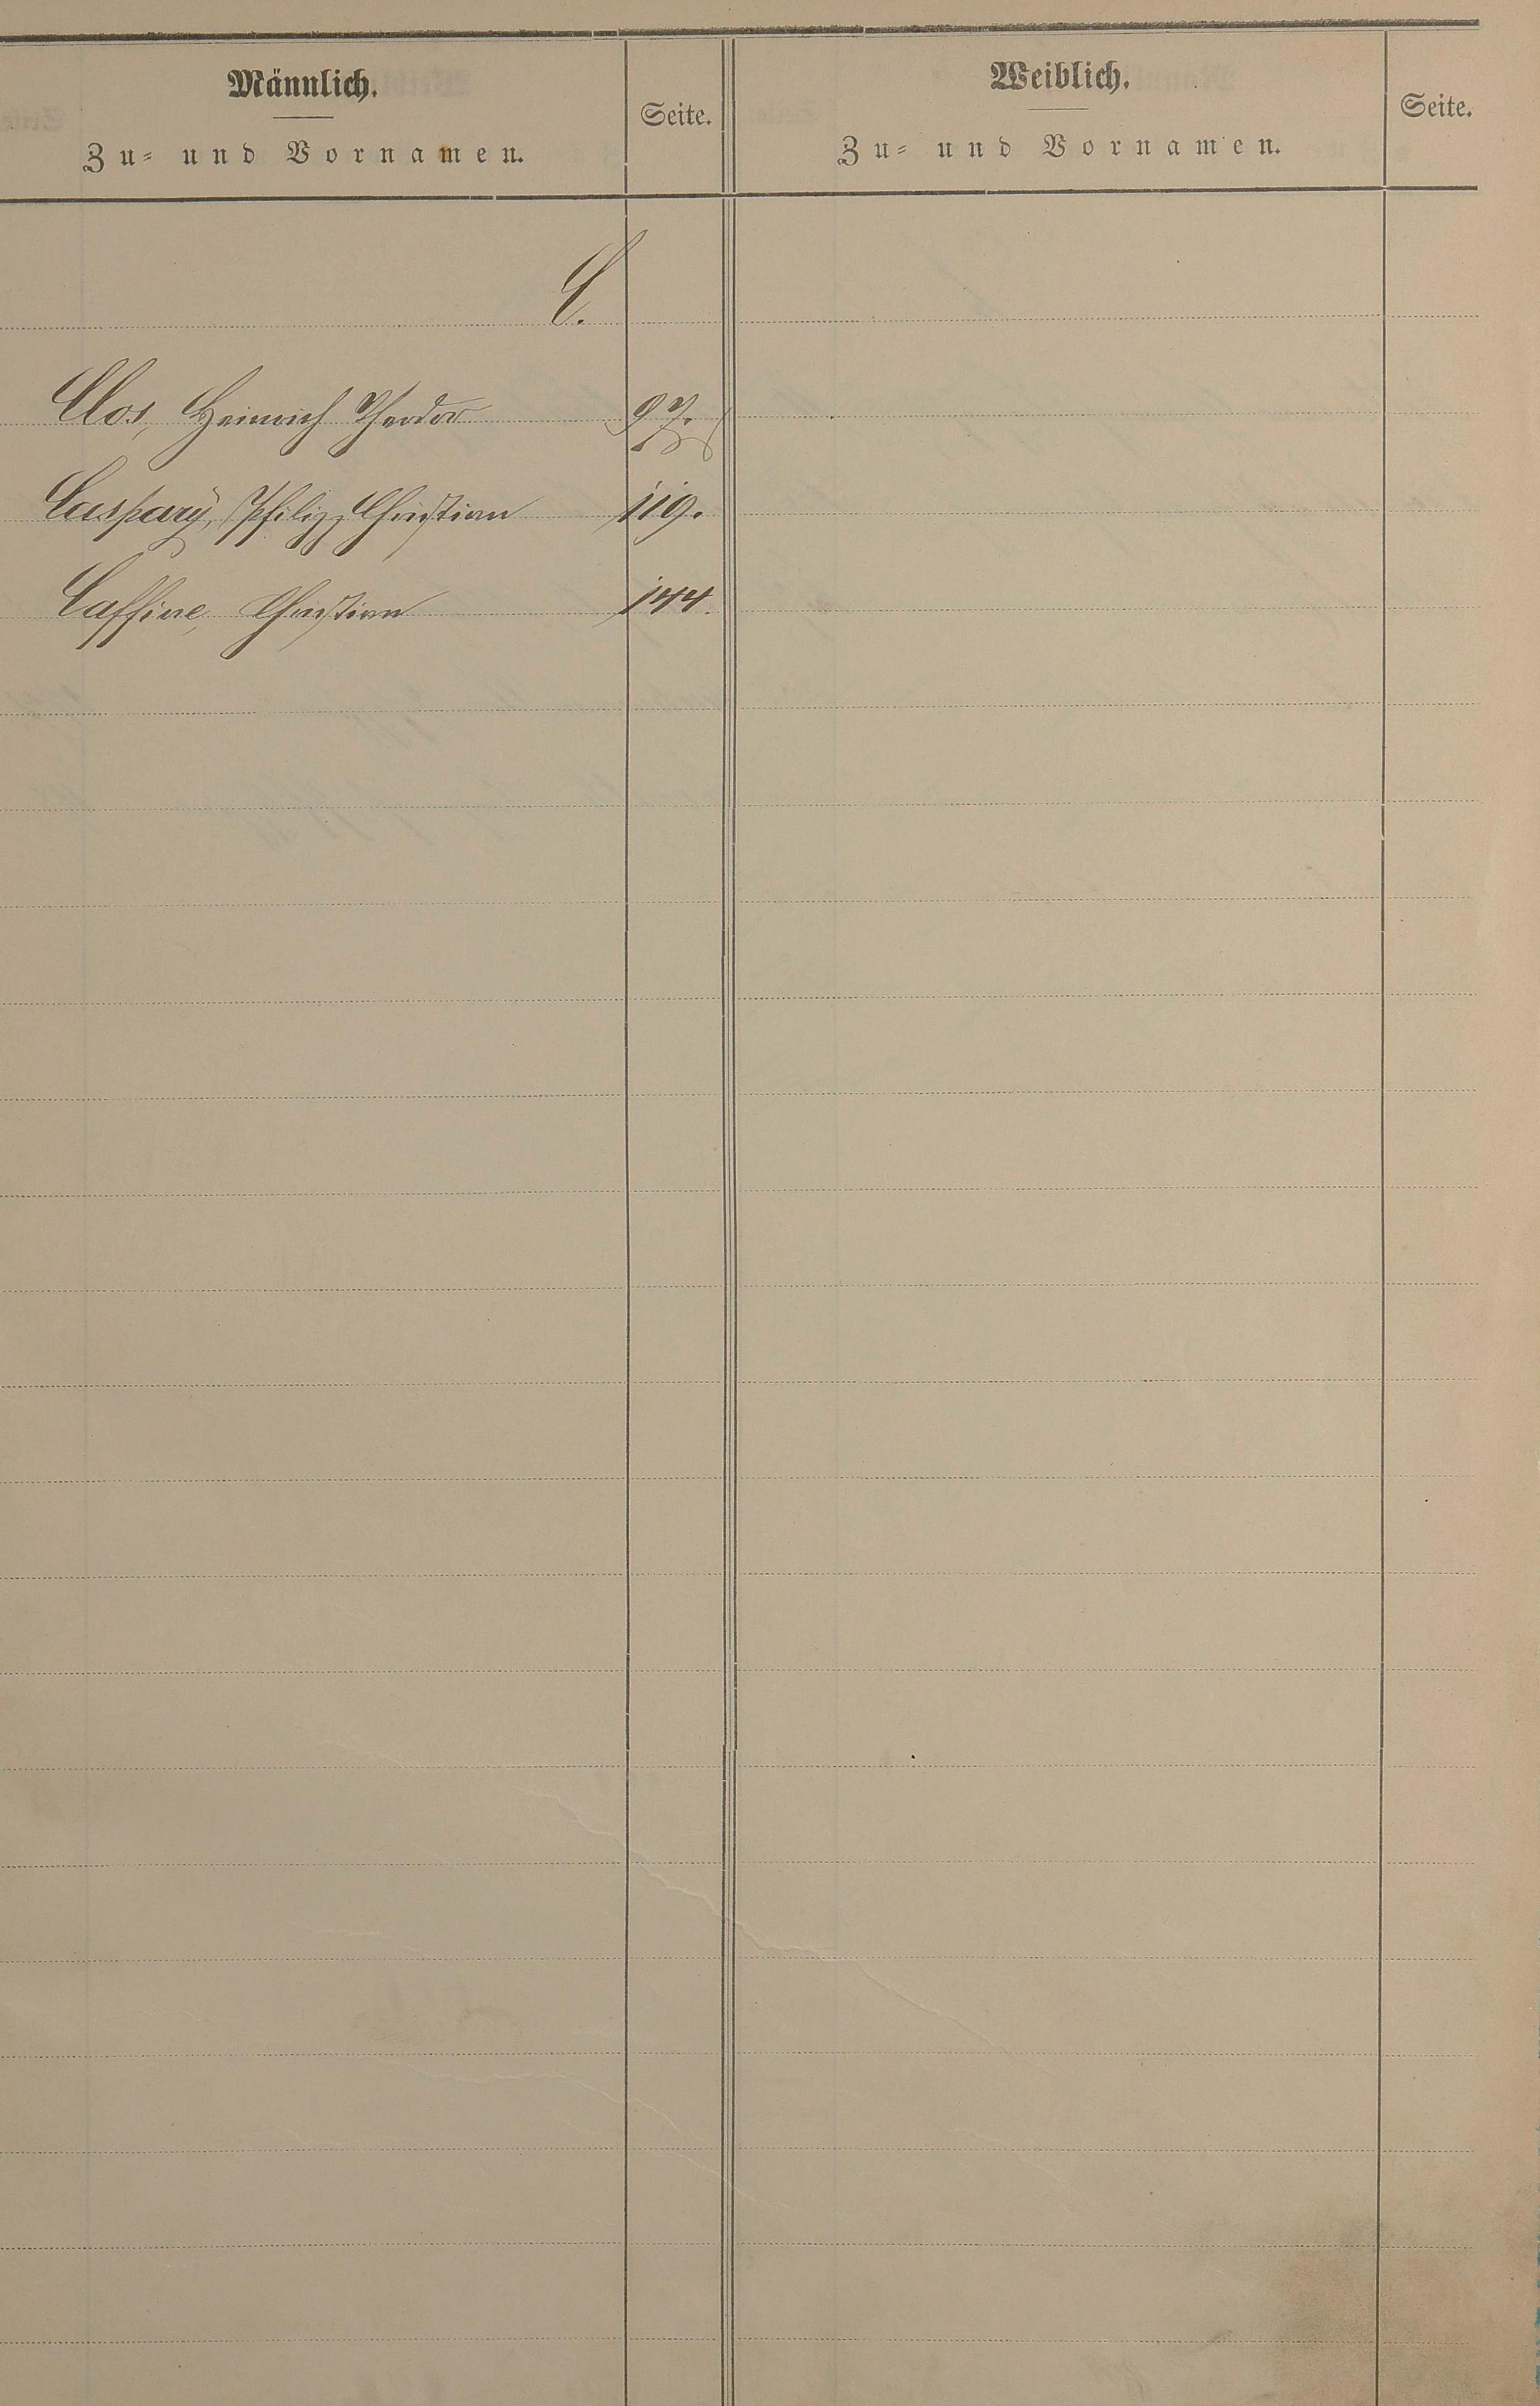 Männlich.
Zu- und Vornamen.
Seite.
Weiblich.
Zu- und Vornamen.
Seite.
C.
Clos, Heinrich Theodor 97.
Caspary, Philipp Christian 119.
Christian 144.